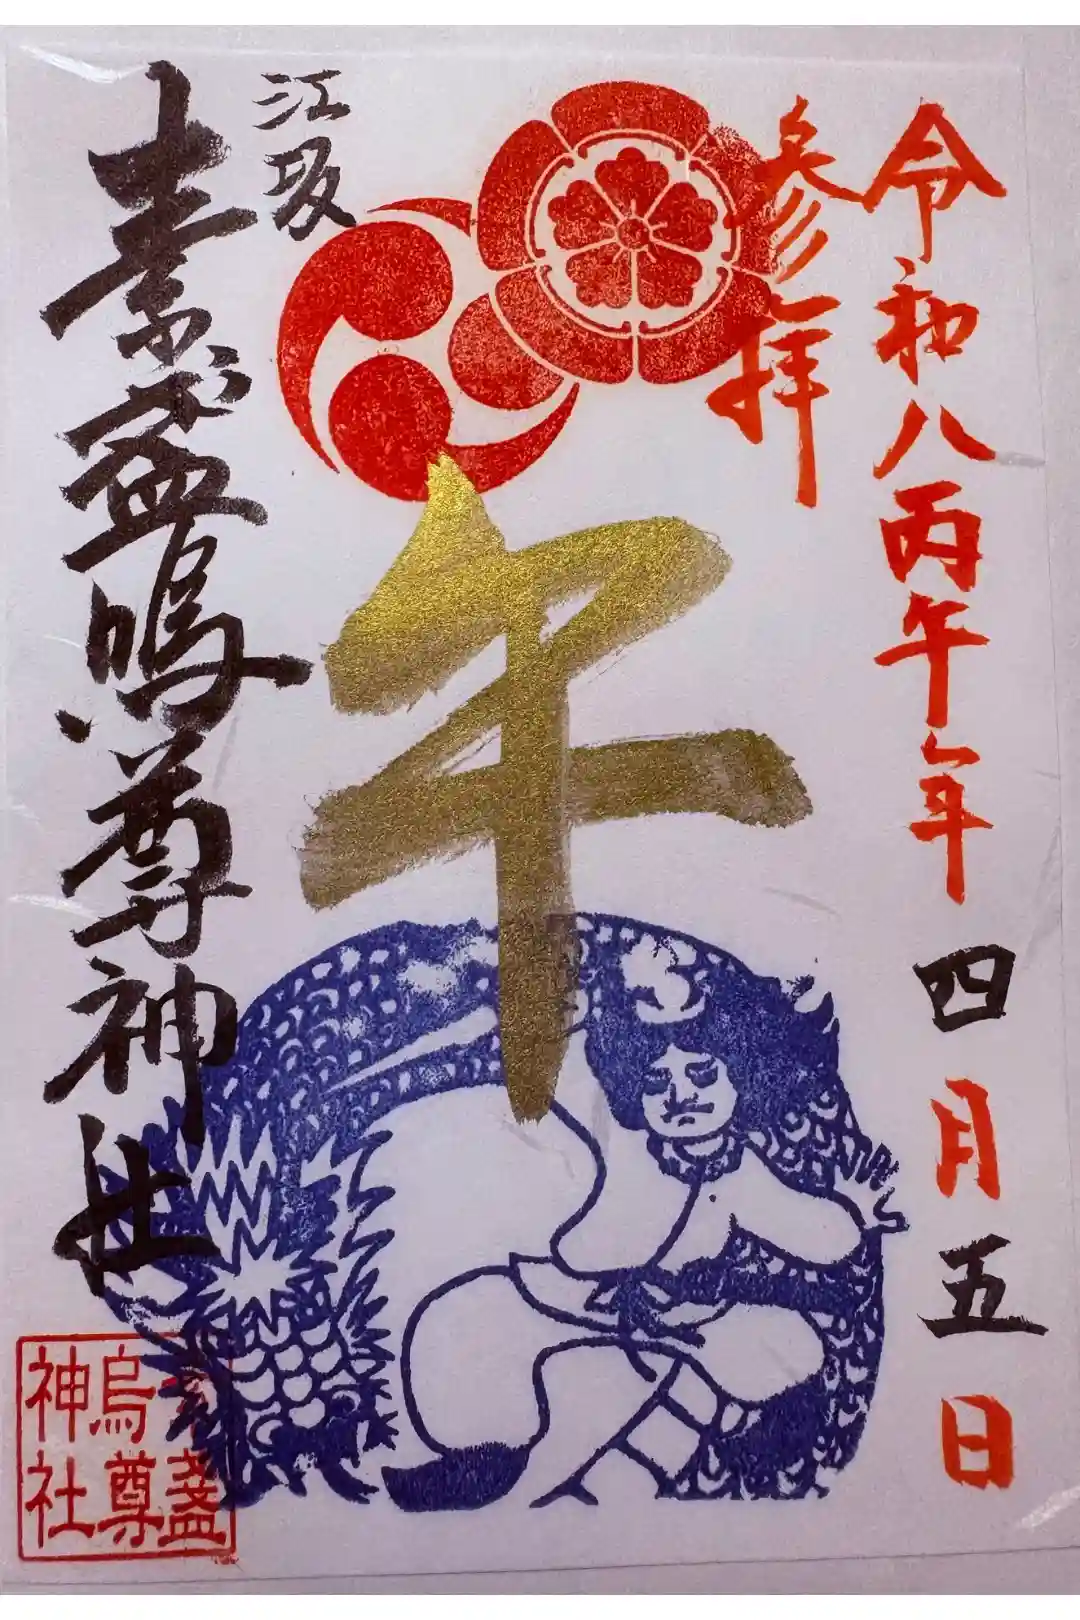 令和八丙午年四月五日
参拝
午
江坂
素盞嗚尊神社
盞
烏尊
神社